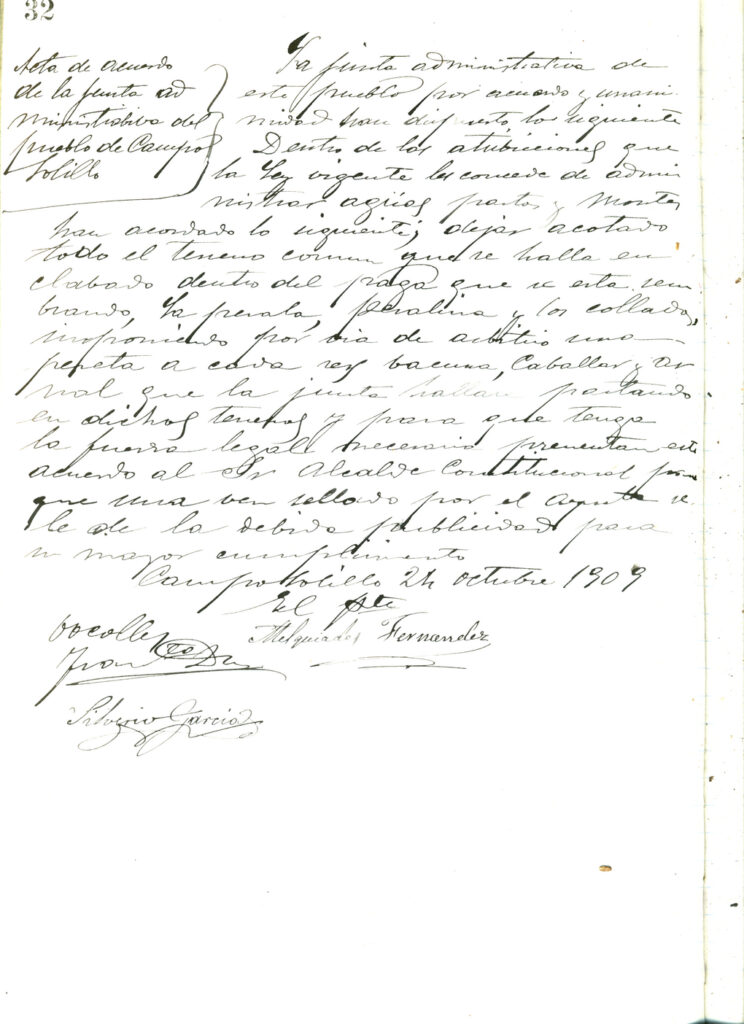 32
Acta de acuerdo
de la junta ad
ministrativa del
pueblo de Campo
Solillo
La junta administrativa de
este pueblo por acuerdo y unani
midad han dispuesto lo siguiente
Dentro de las atribuciones que
la Ley vigente les concede de admi
nistrar aguas pastos y Montes
han acordado lo siguiente; dejar acotado
todo el terreno comun que se halla en
clabado dentro del que se esta sem
brando, La perala, Peralina y los collados,
imponiendo por via de arbitrio una
peseta a cada res bacuna, Caballar y as
nal que la junta hallan pastando
en dichos terrenos y para que tenga
la fuerza legal necesaria presentan este
acuerdo al Sr Alcalde Constitucional para
que una ves sellado por el se
le de la debida publicidad para
su mayor cumplimento
Campo Solillo 24 octubre 1909
El Pte
Vocales
Melquiades Fernandez
Fran<sup>co</sup>
Silverio Garcia